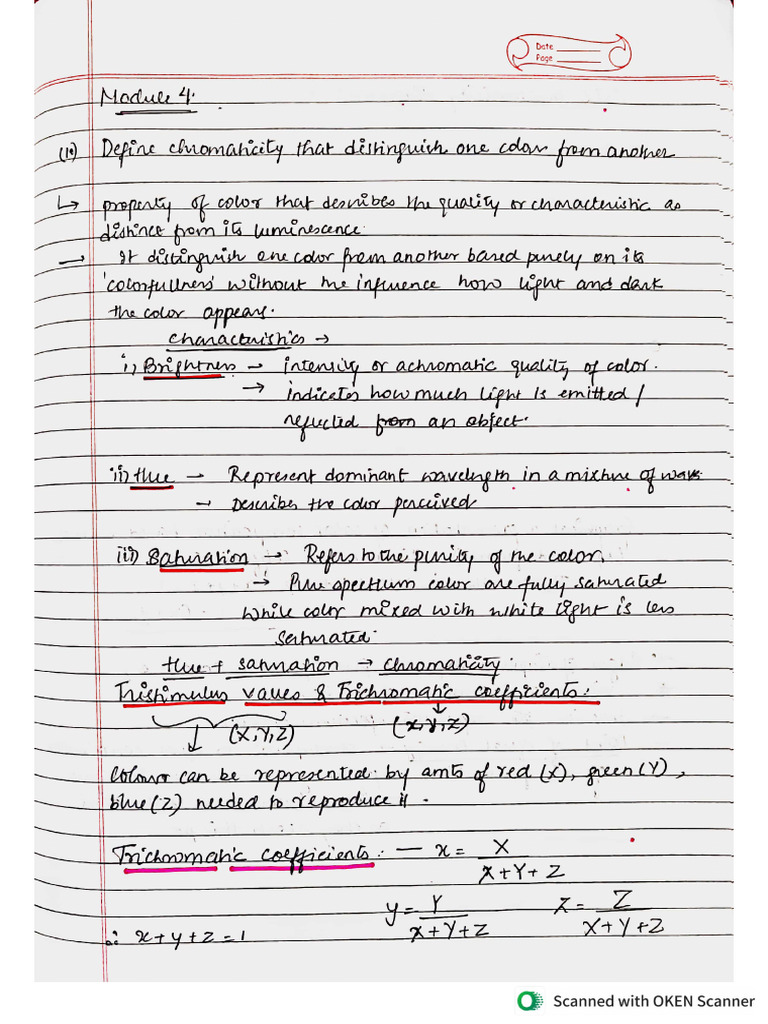 Date
Page
Module 4:
(10) Define chromaticity that distinguish one colour from another
↳ property of color that describes the quality or characteristic as
distinct from its luminescence.
— It distinguish one color from another based purely on its
'colorfullness' without the influence how light and dark
the color appears.
Characteristics →
i) Brightness → intensity or achromatic quality of color.
→ indicates how much light is emitted /
reflected from an object.
ii) Hue → Represent dominant wavelength in a mixture of waves
→ Describes the color perceived
iii) Saturation → Refers to the purity of the color.
→ Pure spectrum color are fully saturated
while color mixed with white light is less
saturated.
Hue + saturation → chromaticity.
Tristimulus values & Trichromatic coefficients:
(X,Y,Z) (x,y,z)
Colours can be represented by amts of red (X), green (Y),
blue (Z) needed to reproduce it.
Trichromatic coefficients: — x = X / X+Y+Z
y = Y / X+Y+Z z = Z / X+Y+Z
∴ x+y+z=1
Scanned with OKEN Scanner